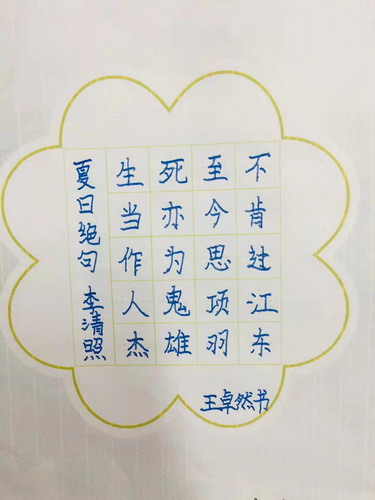 夏日绝句 李清照
生当作人杰
死亦为鬼雄
至今思项羽
不肯过江东
王卓然书